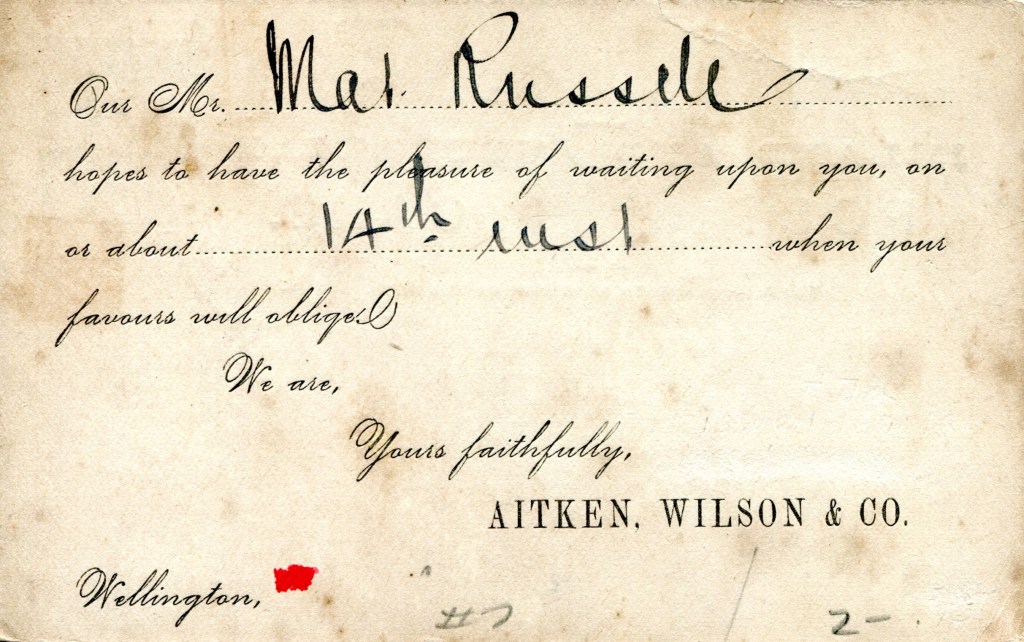 Our Mr. Mat. Russell
hopes to have the pleasure of waiting upon you, on
or about 14th inst when your
favours will oblige.
We are,
Yours faithfully,
AITKEN, WILSON & CO.
Wellington,
2-